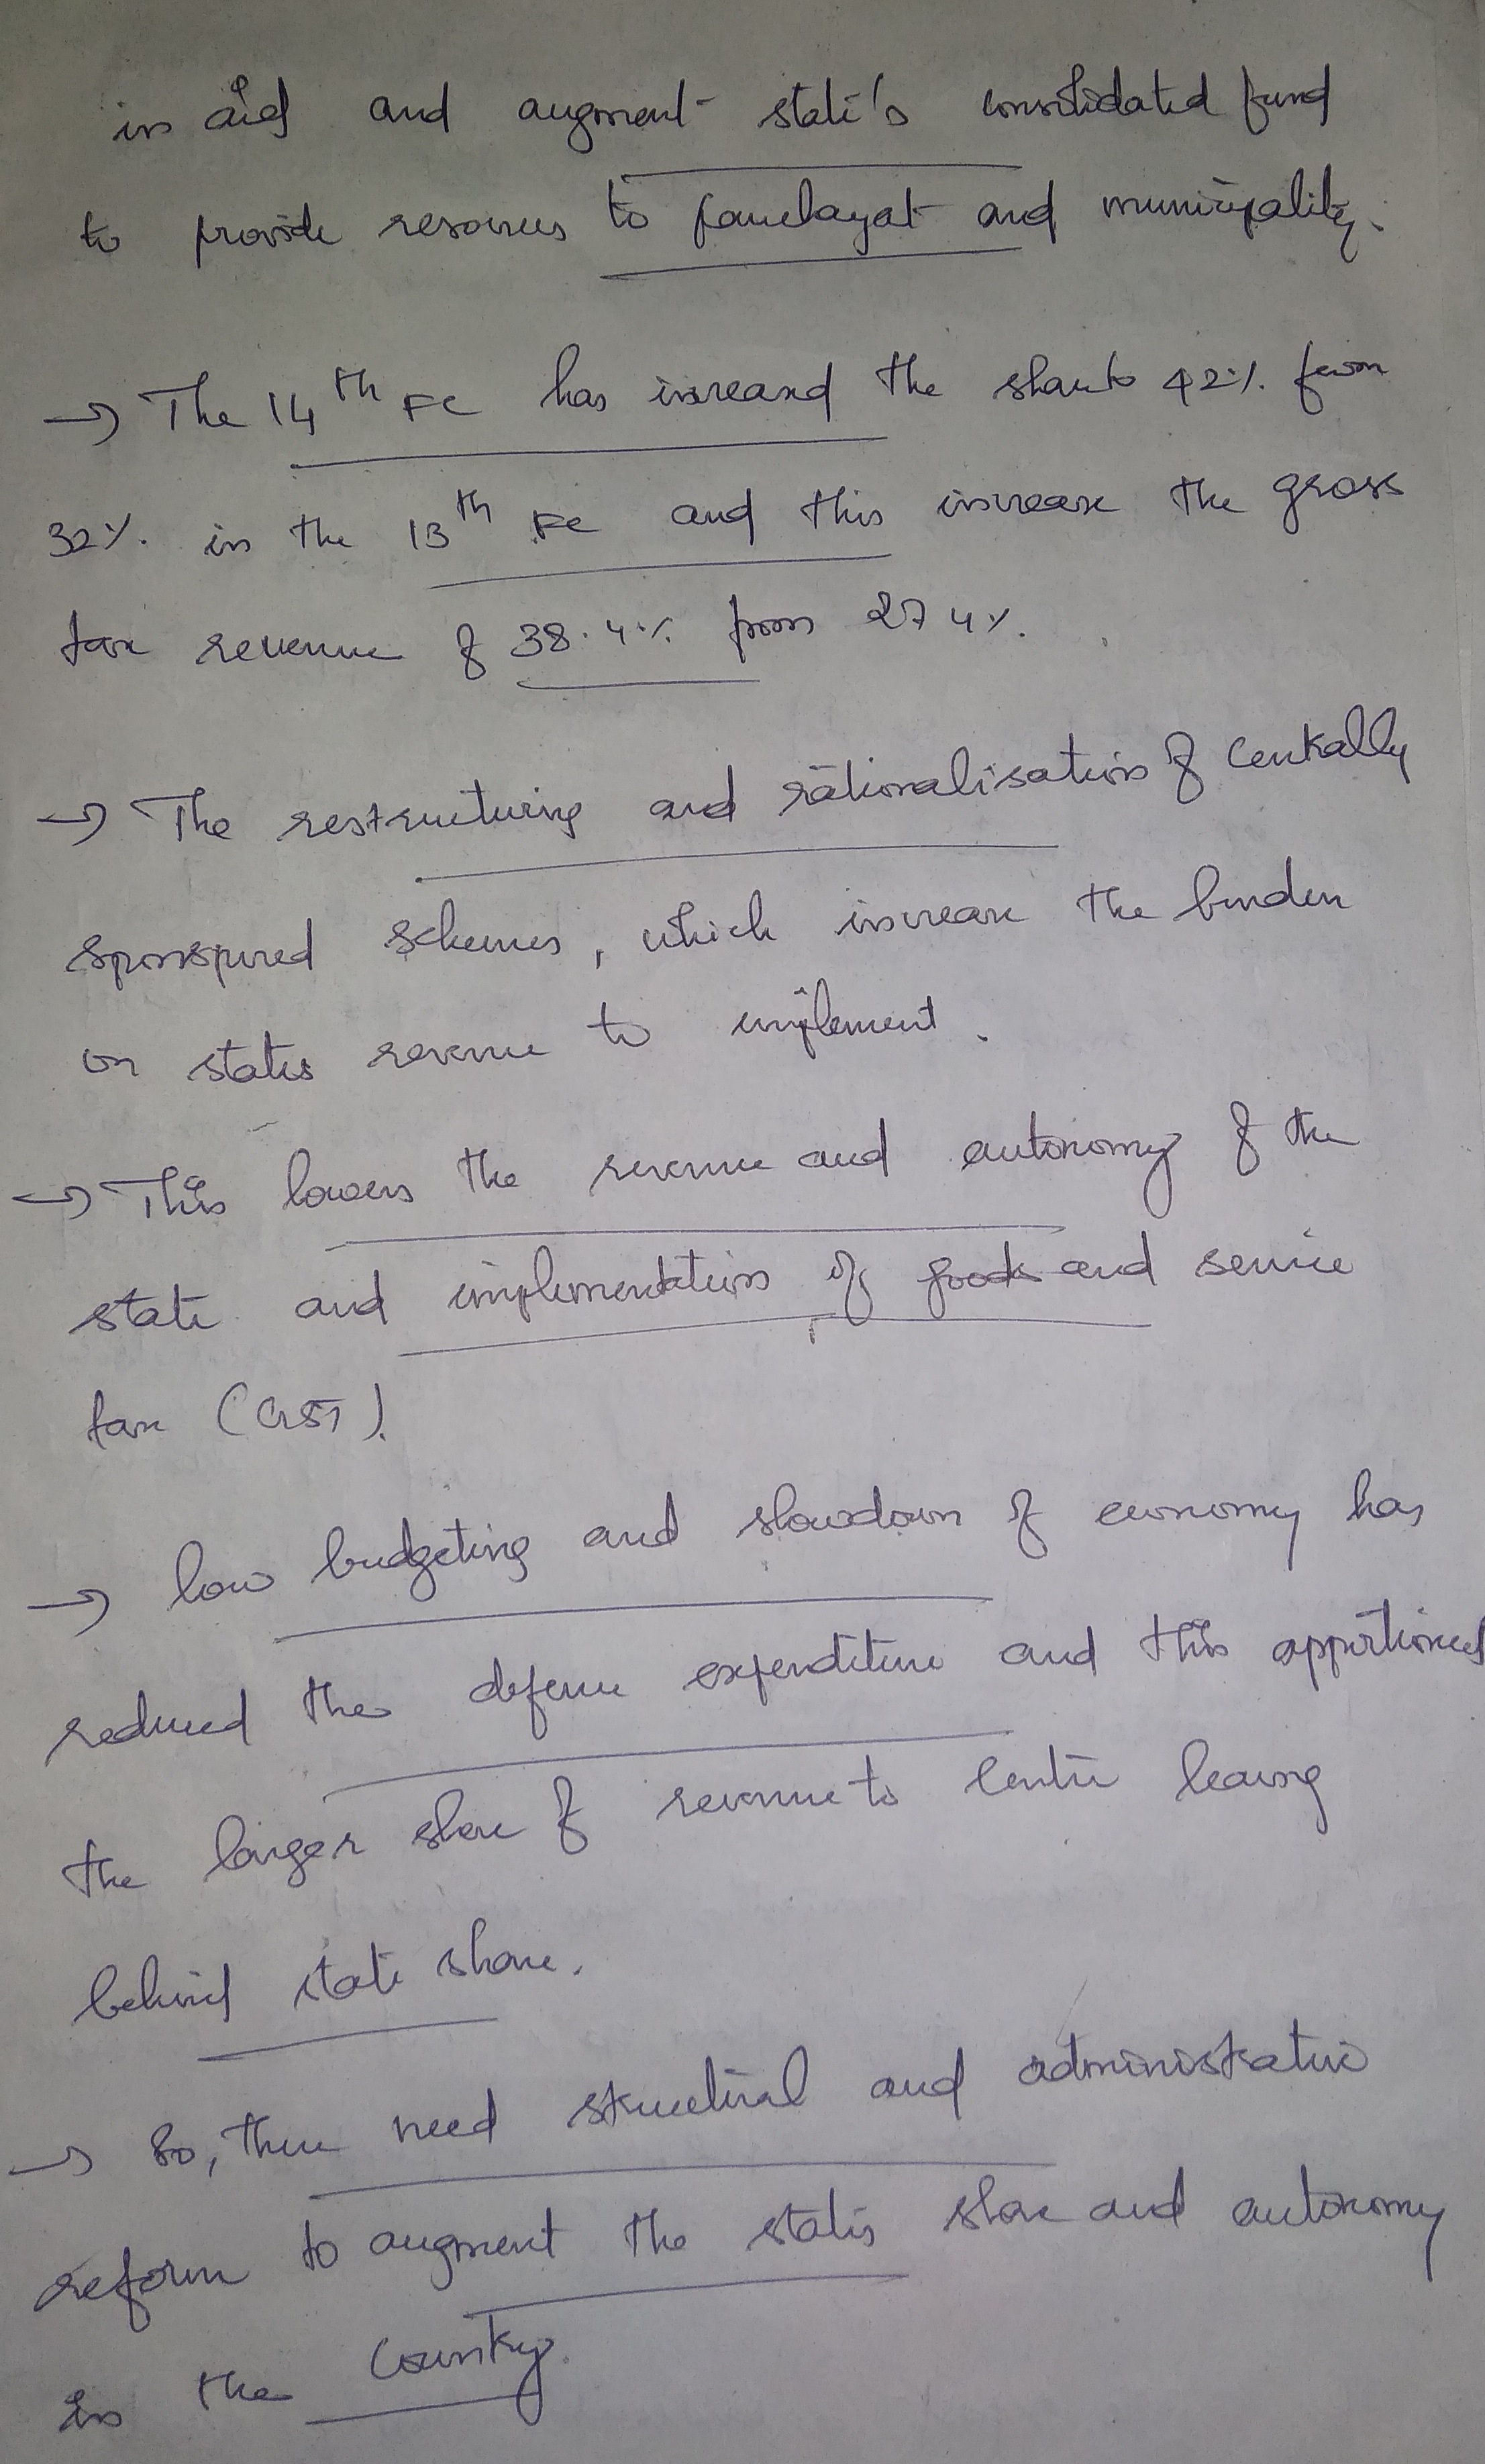 in aid and augment state's consolidated fund
to provide resources to panchayat and municipality.
→ The 14th FC has increased the share to 42%. from
32%. in the 13th FC and this increase the gross
tax revenue of 38.4% from 27 4%.
→ The restructuring and rationalisation of Centrally
sponspured schemes, which increase the burden
on states revenue to implement.
→ This lowers the revenue and autonomy of the
state and implementation of goods and service
tax (GST).
→ low budgeting and slowdown of economy has
reduced the defence expenditure and this apportioned
the larger share of revenue to Centre leaving
behind state share.
→ So, there need structural and administrative
reform to augment the states share and autonomy
in the Country.